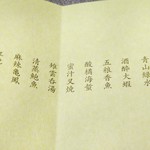 青山綠水
酒醉大蝦
五根香魚
酸橘海蜇
蜜汁叉燒
雉雲吞湯
清蒸鮑魚
麻辣龜鳳